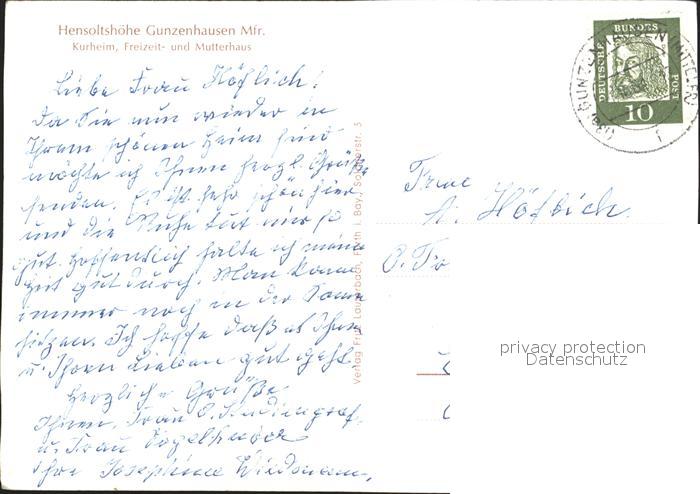 Hensoltshöhe Gunzenhausen Mfr.
Kurheim, Freizeit- und Mutterhaus
Liebe Frau Höflich!
Da Sie nun wieder in
Ihrem schönen Heim sind
möchte ich Ihnen herzl. Grüße
senden. Es ist sehr schön hier
und die Ruhe tut mir so
gut. Hoffentlich halte ich meine
Zeit gut durch. Man kann
immer noch in der Sonne
sitzen. Ich hoffe daß es Ihnen
u. Ihren Lieben gut geht.
Herzliche Grüße
Ihnen, Frau
u. Frau
Ihre Josephine
Verlag Frz. Lauterbach, Fürth i. Bay.,
DEUTSCHE
BUNDES
POST
10
Frau
A. Höflich
privacy protection
Datenschutz